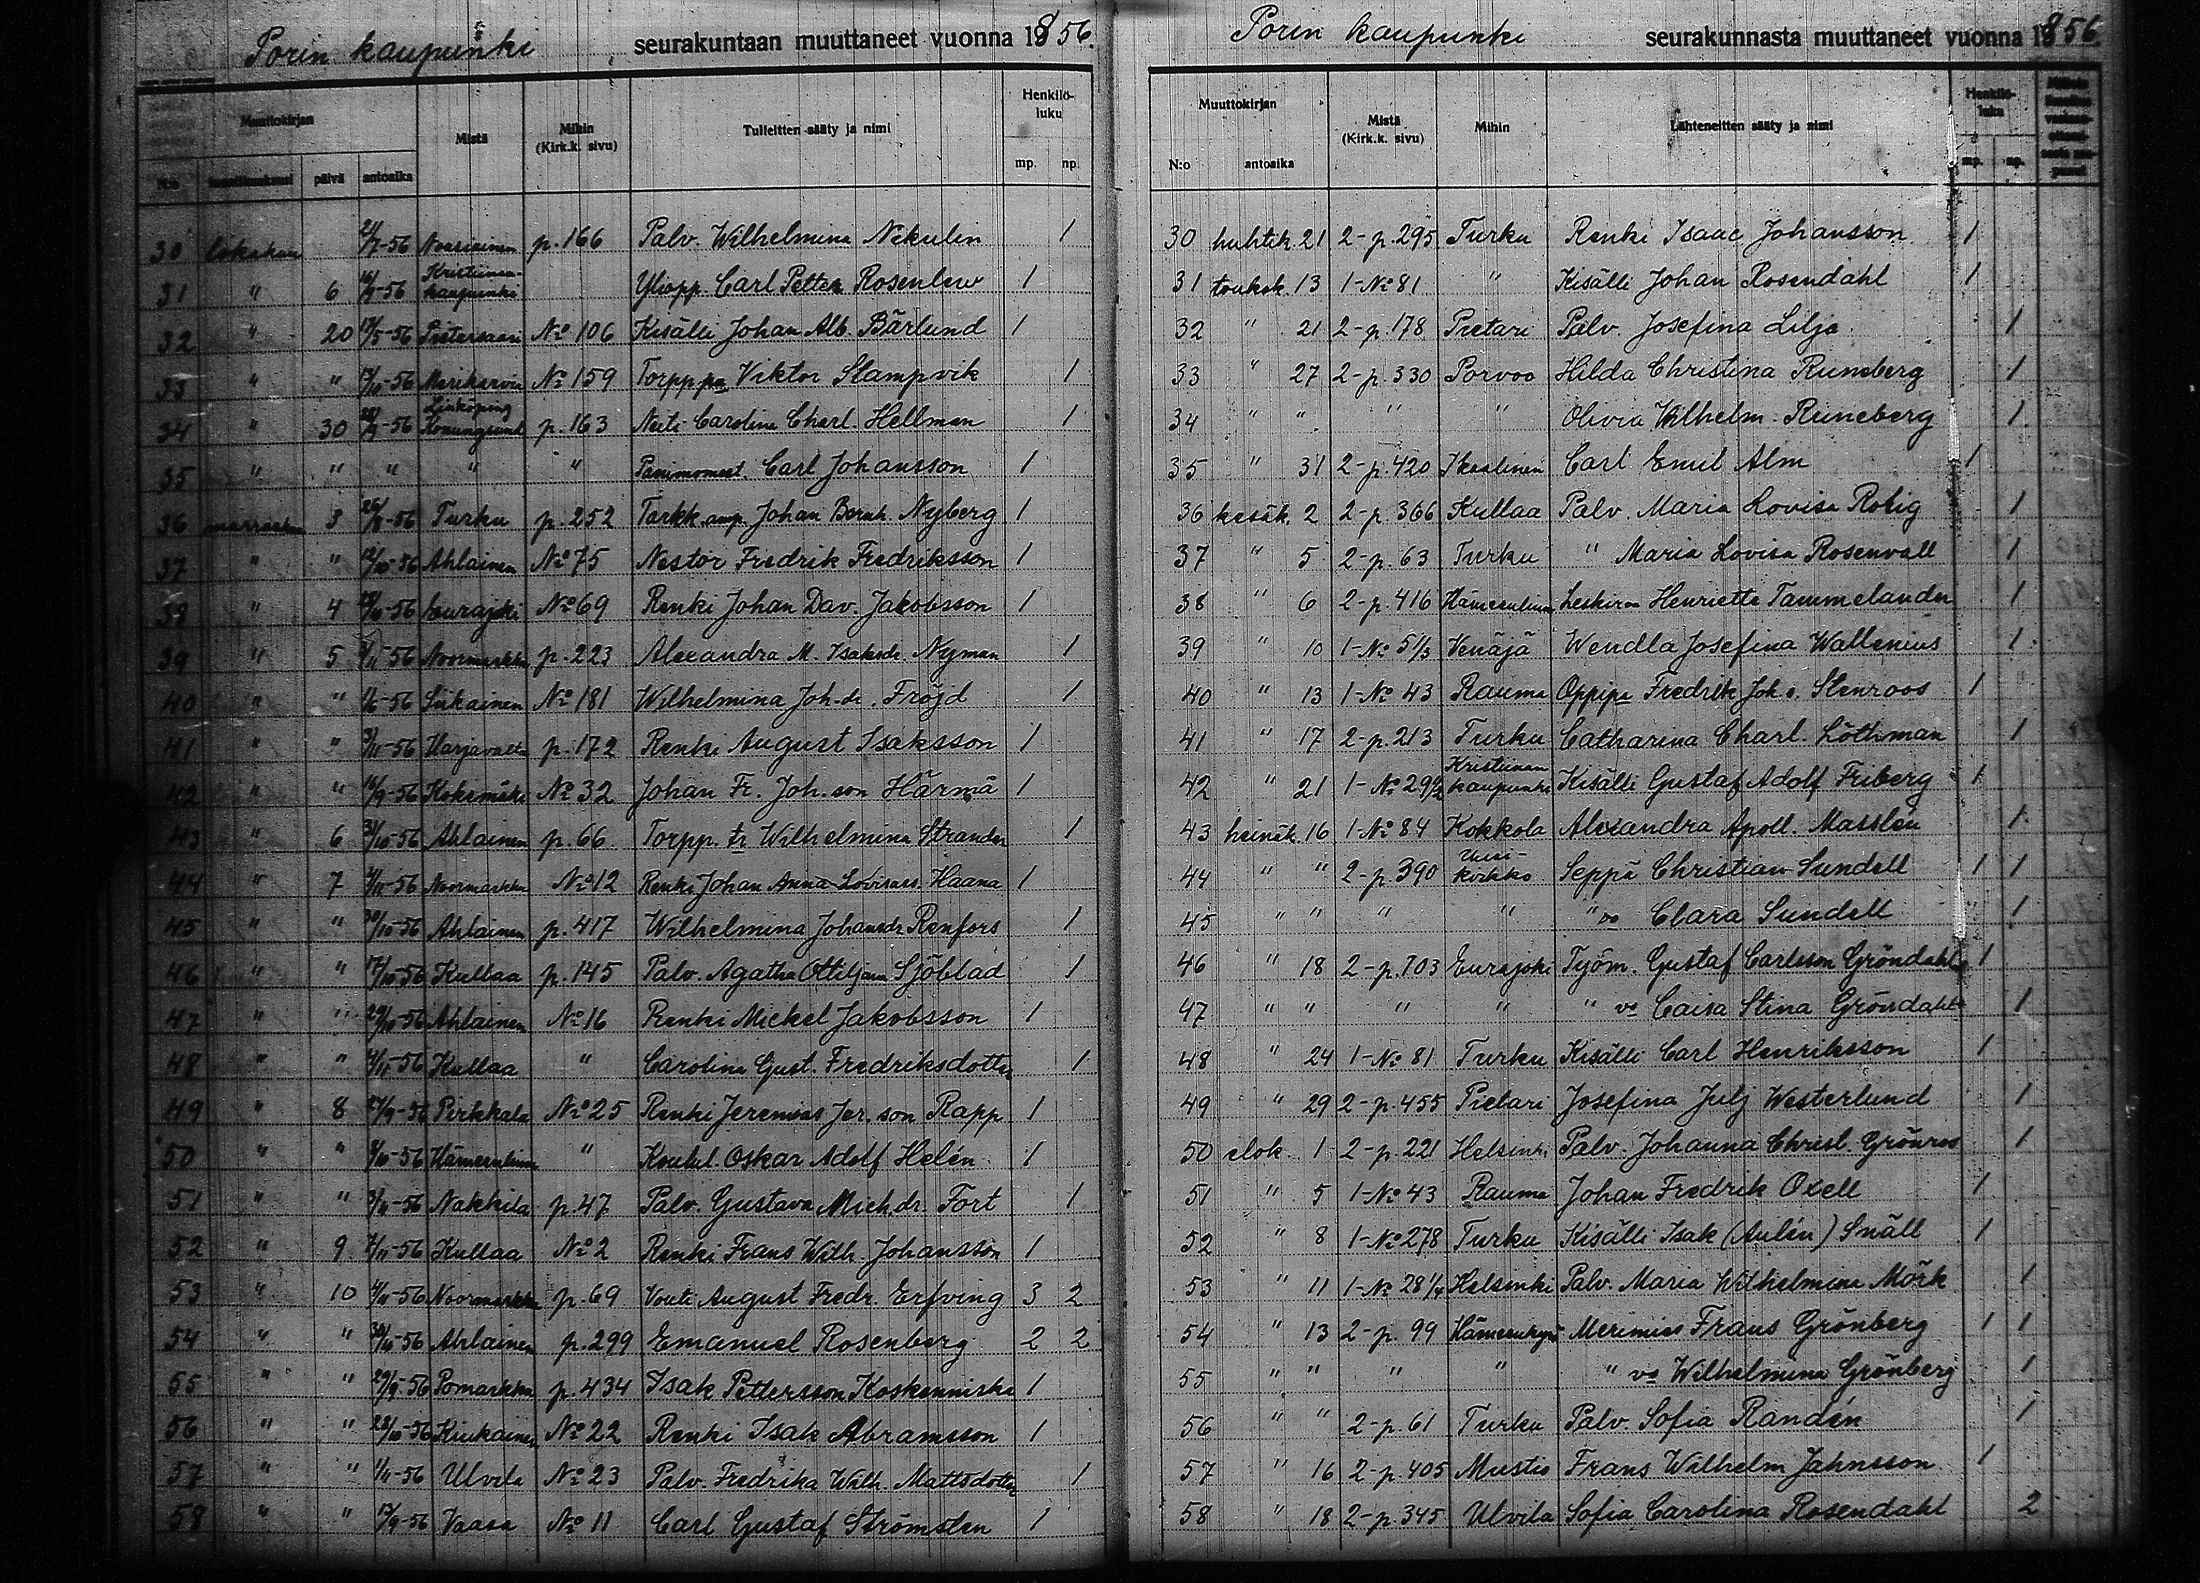 Porin kaupunki seurakuntaan muuttaneet vuonna 1856.
Muuttokirjan Mistä Mihin (Kirk.k. sivu) Tulleitten sääty ja nimi Henkilö-luku
N:o päivä antoaika mp. np.
30 lokakuu -56 p. 166 Palv. Wilhelmina Nikulin 1
31 " 6 -56 Kristiinan-kaupunki Yliopp. Carl Petter Rosenlew 1
32 " 20 17/5-56 Pietarsaari No 106 Kisälli Johan Alb. Bärlund 1
33 " " 17/10-56 Merikarvia No 159 Torpp.pa Viktor Stampvik 1
34 " 30 -56 Linköping Konungsund p. 163 Neiti Carolina Charl. Hellman 1
35 " " " " " Panimomest. Carl Johansson 1
36 marraskuu 3 -56 Turku p. 252 Tarkk.amp. Johan Bernh. Nyberg 1
37 " " -56 Ahlainen No 75 Nestor Fredrik Fredriksson 1
38 " 4 -56 Eurajoki No 69 Renki Johan Dav. Jakobsson 1
39 " 5 -56 Noormarkku p. 223 Alexandra M. Isaksdr. Nyman 1
40 " " -56 Siikainen No 181 Wilhelmina Joh.dr. Fröjd 1
41 " " 3/11-56 Harjavalta p. 172 Renki August Isaksson 1
42 " " 16/9-56 Kokemäki No 32 Johan Fr. Joh.son Härmä 1
43 " 6 31/10-56 Ahlainen p. 66 Torpp. tr Wilhelmina Strander 1
44 " 7 -56 Noormarkku No 12 Renki Johan Anna-Lovisas. Haana 1
45 " " 30/10-56 Ahlainen p. 417 Wilhelmina Johansdr. Renfors 1
46 " " 17/10-56 Kullaa p. 145 Palv. Agatha Ottiljana Sjöblad 1
47 " " 29/10-56 Ahlainen No 16 Renki Mickel Jakobsson 1
48 " " -56 Kullaa " Carolina Gust. Fredriksdotter 1
49 " 8 27/9-56 Pirkkala No 25 Renki Jeremias Jer.son Rapp 1
50 " " -56 Hämeenlinna " Koulul. Oskar Adolf Helén 1
51 " " -56 Nakkila p. 47 Palv. Gustava Mich.dr. Fort 1
52 " 9 7/11-56 Kullaa No 2 Renki Frans Wilh. Johansson 1
53 " 10 -56 Noormarkku p. 69 Vouti August Fredr. Erfving 3 2
54 " " -56 Ahlainen p. 299 Emanuel Rosenberg 2 2
55 " " 29/9-56 Pomarkku p. 434 Isak Pettersson Koskenniska 1
56 " " 28/10-56 No 22 Renki Isak Abramsson 1
57 " " -56 Ulvila No 23 Palv. Fredrika Wilh. Mattsdotter 1
58 " " 17/9-56 Vaasa No 11 Carl Gustaf Strömsten 1
Porin kaupunki seurakunnasta muuttaneet vuonna 1856.
Muuttokirjan Mistä (Kirk.k. sivu) Mihin Lähteneitten sääty ja nimi Henkilö-luku
N:o antoaika mp. np.
30 huhtik. 21 2-p. 295 Turku Renki Isaac Johansson 1
31 toukok. 13 1-No 81 " Kisälli Johan Rosendahl 1
32 " 21 2-p. 178 Pietari Palv. Josefina Lilja 1
33 " 27 2-p. 330 Porvoo Hilda Christina Runeberg 1
34 " " " " Olivia Wilhelm. Runeberg 1
35 " 31 2-p. 420 Ikaalinen Carl Emil Alm 1
36 kesäk. 2 2-p. 366 Kullaa Palv. Maria Lovisa Rolig 1
37 " 5 2-p. 63 Turku " Maria Lovisa Rosenvall 1
38 " 6 2-p. 416 Hämeenlinna Leskirva Henriette Tammelander 1
39 " 10 1-No 51/3 Venäjä Wendla Josefina Wallenius 1
40 " 13 1-No 43 Rauma Oppipa Fredrik Joh.s. Stenroos 1
41 " 17 2-p. 213 Turku Catharina Charl. Löthman 1
42 " 21 1-No 29 1/2 Kristiinan kaupunki Kisälli Gustaf Adolf Friberg 1
43 heinäk. 16 1-No 84 Kokkola Alexandra Apoll. Masslén 1
44 " " 2-p. 390 Uusi-kirkko Seppä Christian Sundell 1 1
45 " " " " " vo Clara Sundell 1
46 " 18 2-p. 703 Eurajoki Työm. Gustaf Carlsson Gröndahl 1
47 " " " " " vo Caisa Stina Gröndahl 1
48 " 24 1-No 81 Turku Kisälli Carl Henriksson 1
49 " 29 2-p. 455 Pietari Josefina Julj Westerlund 1
50 elok. 1 2-p. 221 Helsinki Palv. Johanna Christ. Grönroos 1
51 " 5 1-No 43 Rauma Johan Fredrik Oxell 1
52 " 8 1-No 278 Turku Kisälli Isak (Aulin) Snäll 1
53 " 11 1-No 28 1/4 Helsinki Palv. Maria Wilhelmina Mörk 1
54 " 13 2-p. 99 Hämeenkyrö Merimies Frans Grönberg 1 1
55 " " " " " vo Wilhelmina Grönberg 1
56 " " 2-p. 61 Turku Palv. Sofia Randén 1
57 " 16 2-p. 405 Mustio Frans Wilhelm Jahnsson 1
58 " 18 2-p. 345 Ulvila Sofia Carolina Rosendahl 2